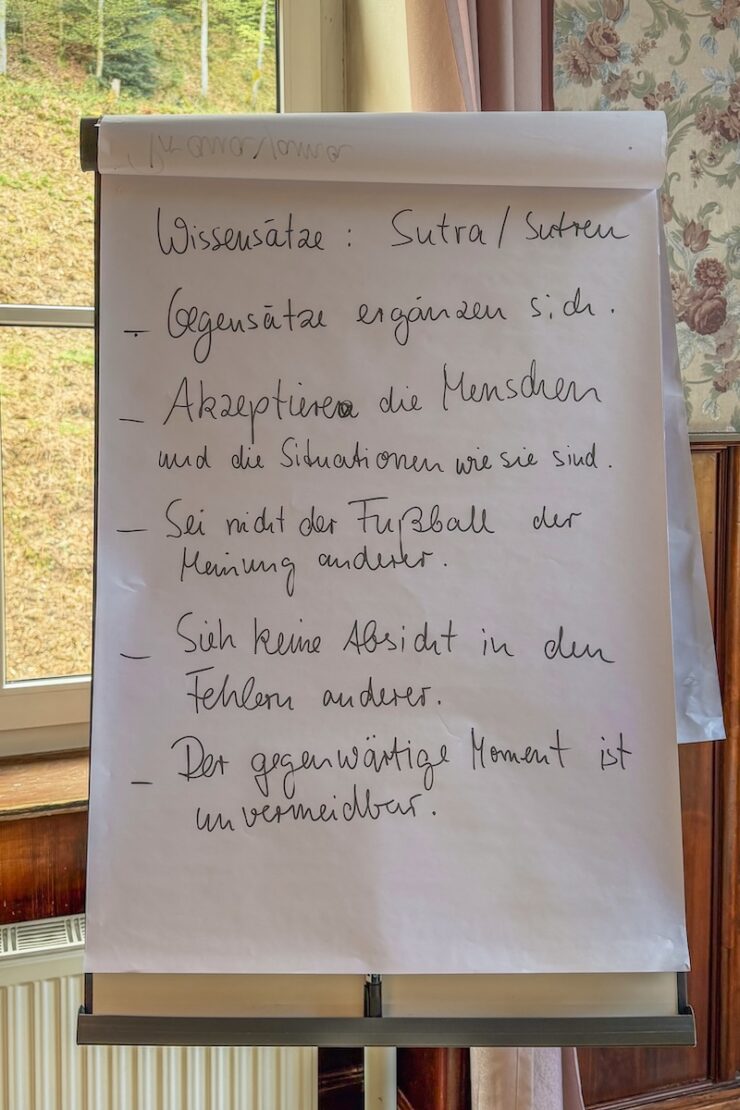 Pranayama
Wissensätze : Sutra / Sutren
– Gegensätze ergänzen sich.
– Akzeptiere die Menschen
und die Situationen wie sie sind.
– Sei nicht der Fußball der
Meinung anderer.
– Sieh keine Absicht in den
Fehlern anderer.
– Der gegenwärtige Moment ist
unvermeidbar.